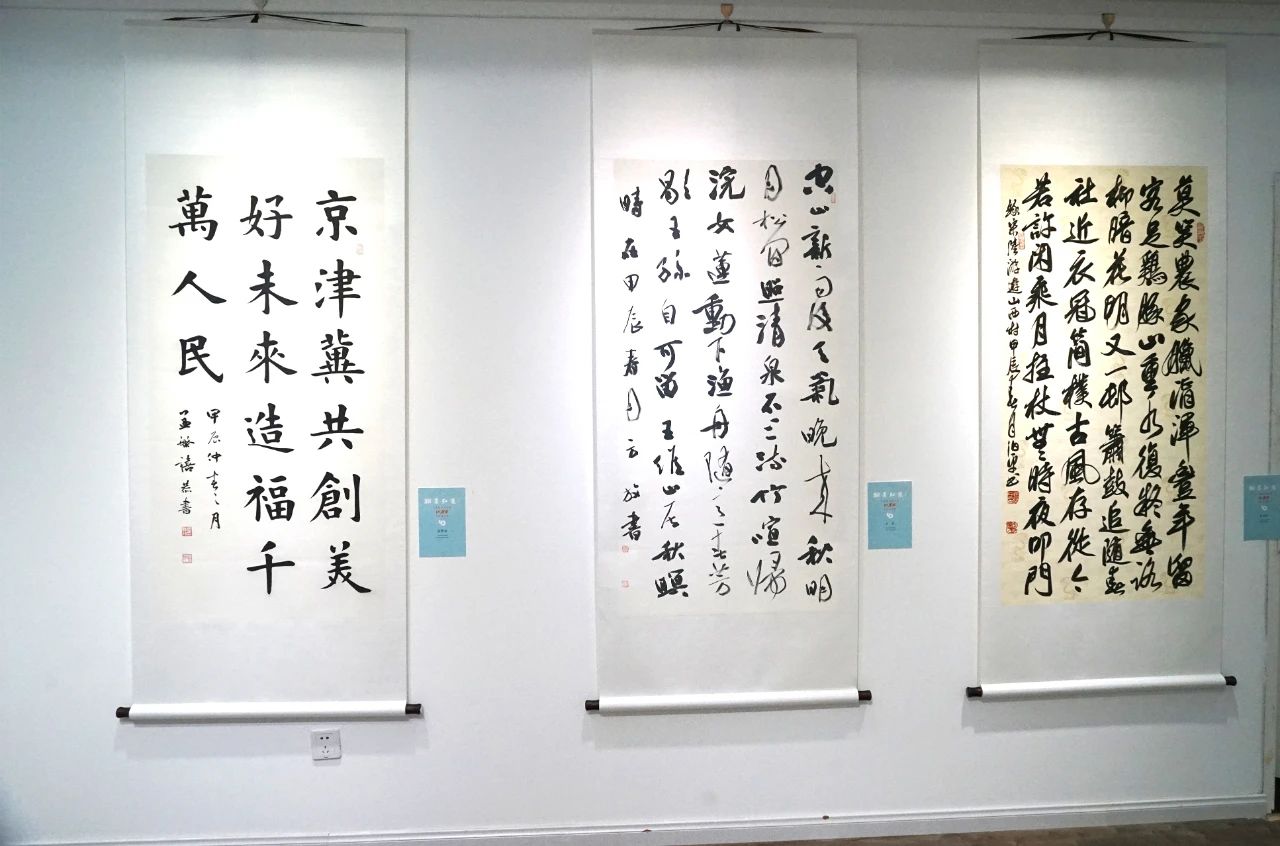 京津冀共創美
好未來造福千
萬人民
甲辰仲春之月
孟繁禧恭書
空山新雨後天氣晚來秋明
月松間照清泉石上流竹喧歸
浣女蓮動下漁舟隨意春芳
歇王孫自可留王維山居秋暝
時在甲辰春月方放書
莫笑農家臘酒渾豐年留
客足鷄豚山重水復疑無路
柳暗花明又一邨簫鼓追隨春
社近衣冠簡樸古風存從今
若許閑乘月拄杖無時夜叩門
錄宋陸游遊山西村甲辰年春月